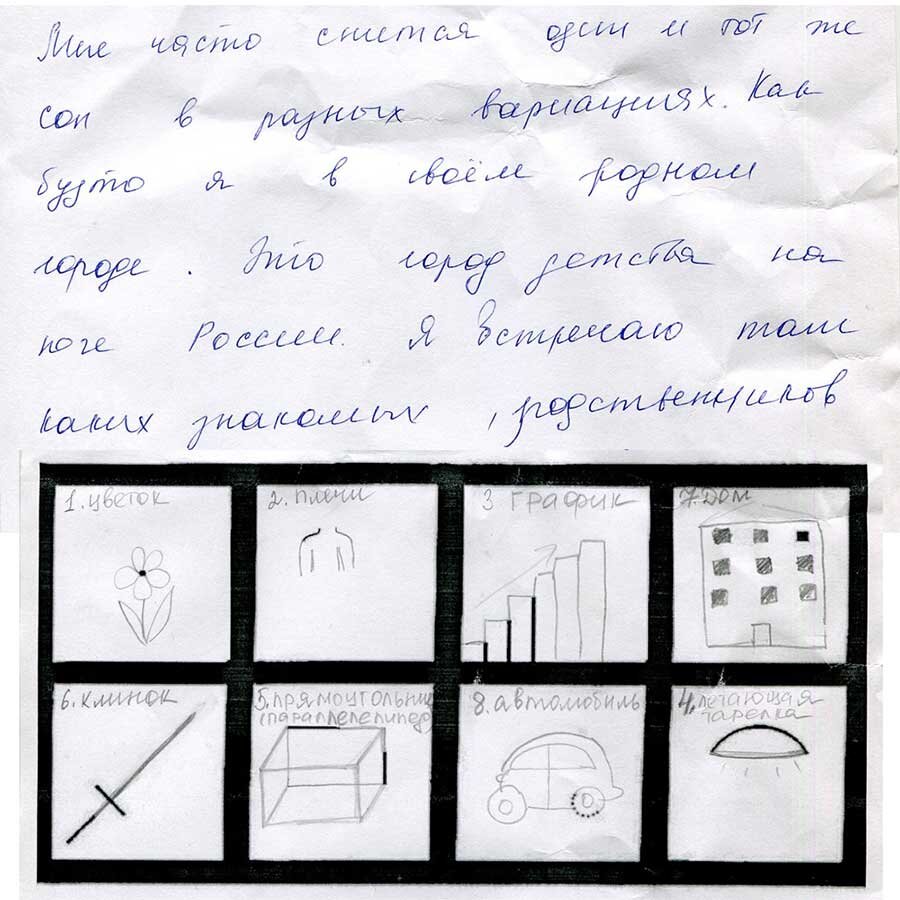 Мне часто снится один и тот же
сон в разных вариациях. Как
будто я в своём родном
городе. Это город детства на
юге России. Я встречаю там
каких знакомых, родственников
1. цветок
2. плечи
3 график
7. Дом
6. клинок
5. прямоугольник
(параллелепипед)
8. автомобиль
4. летающая
тарелка